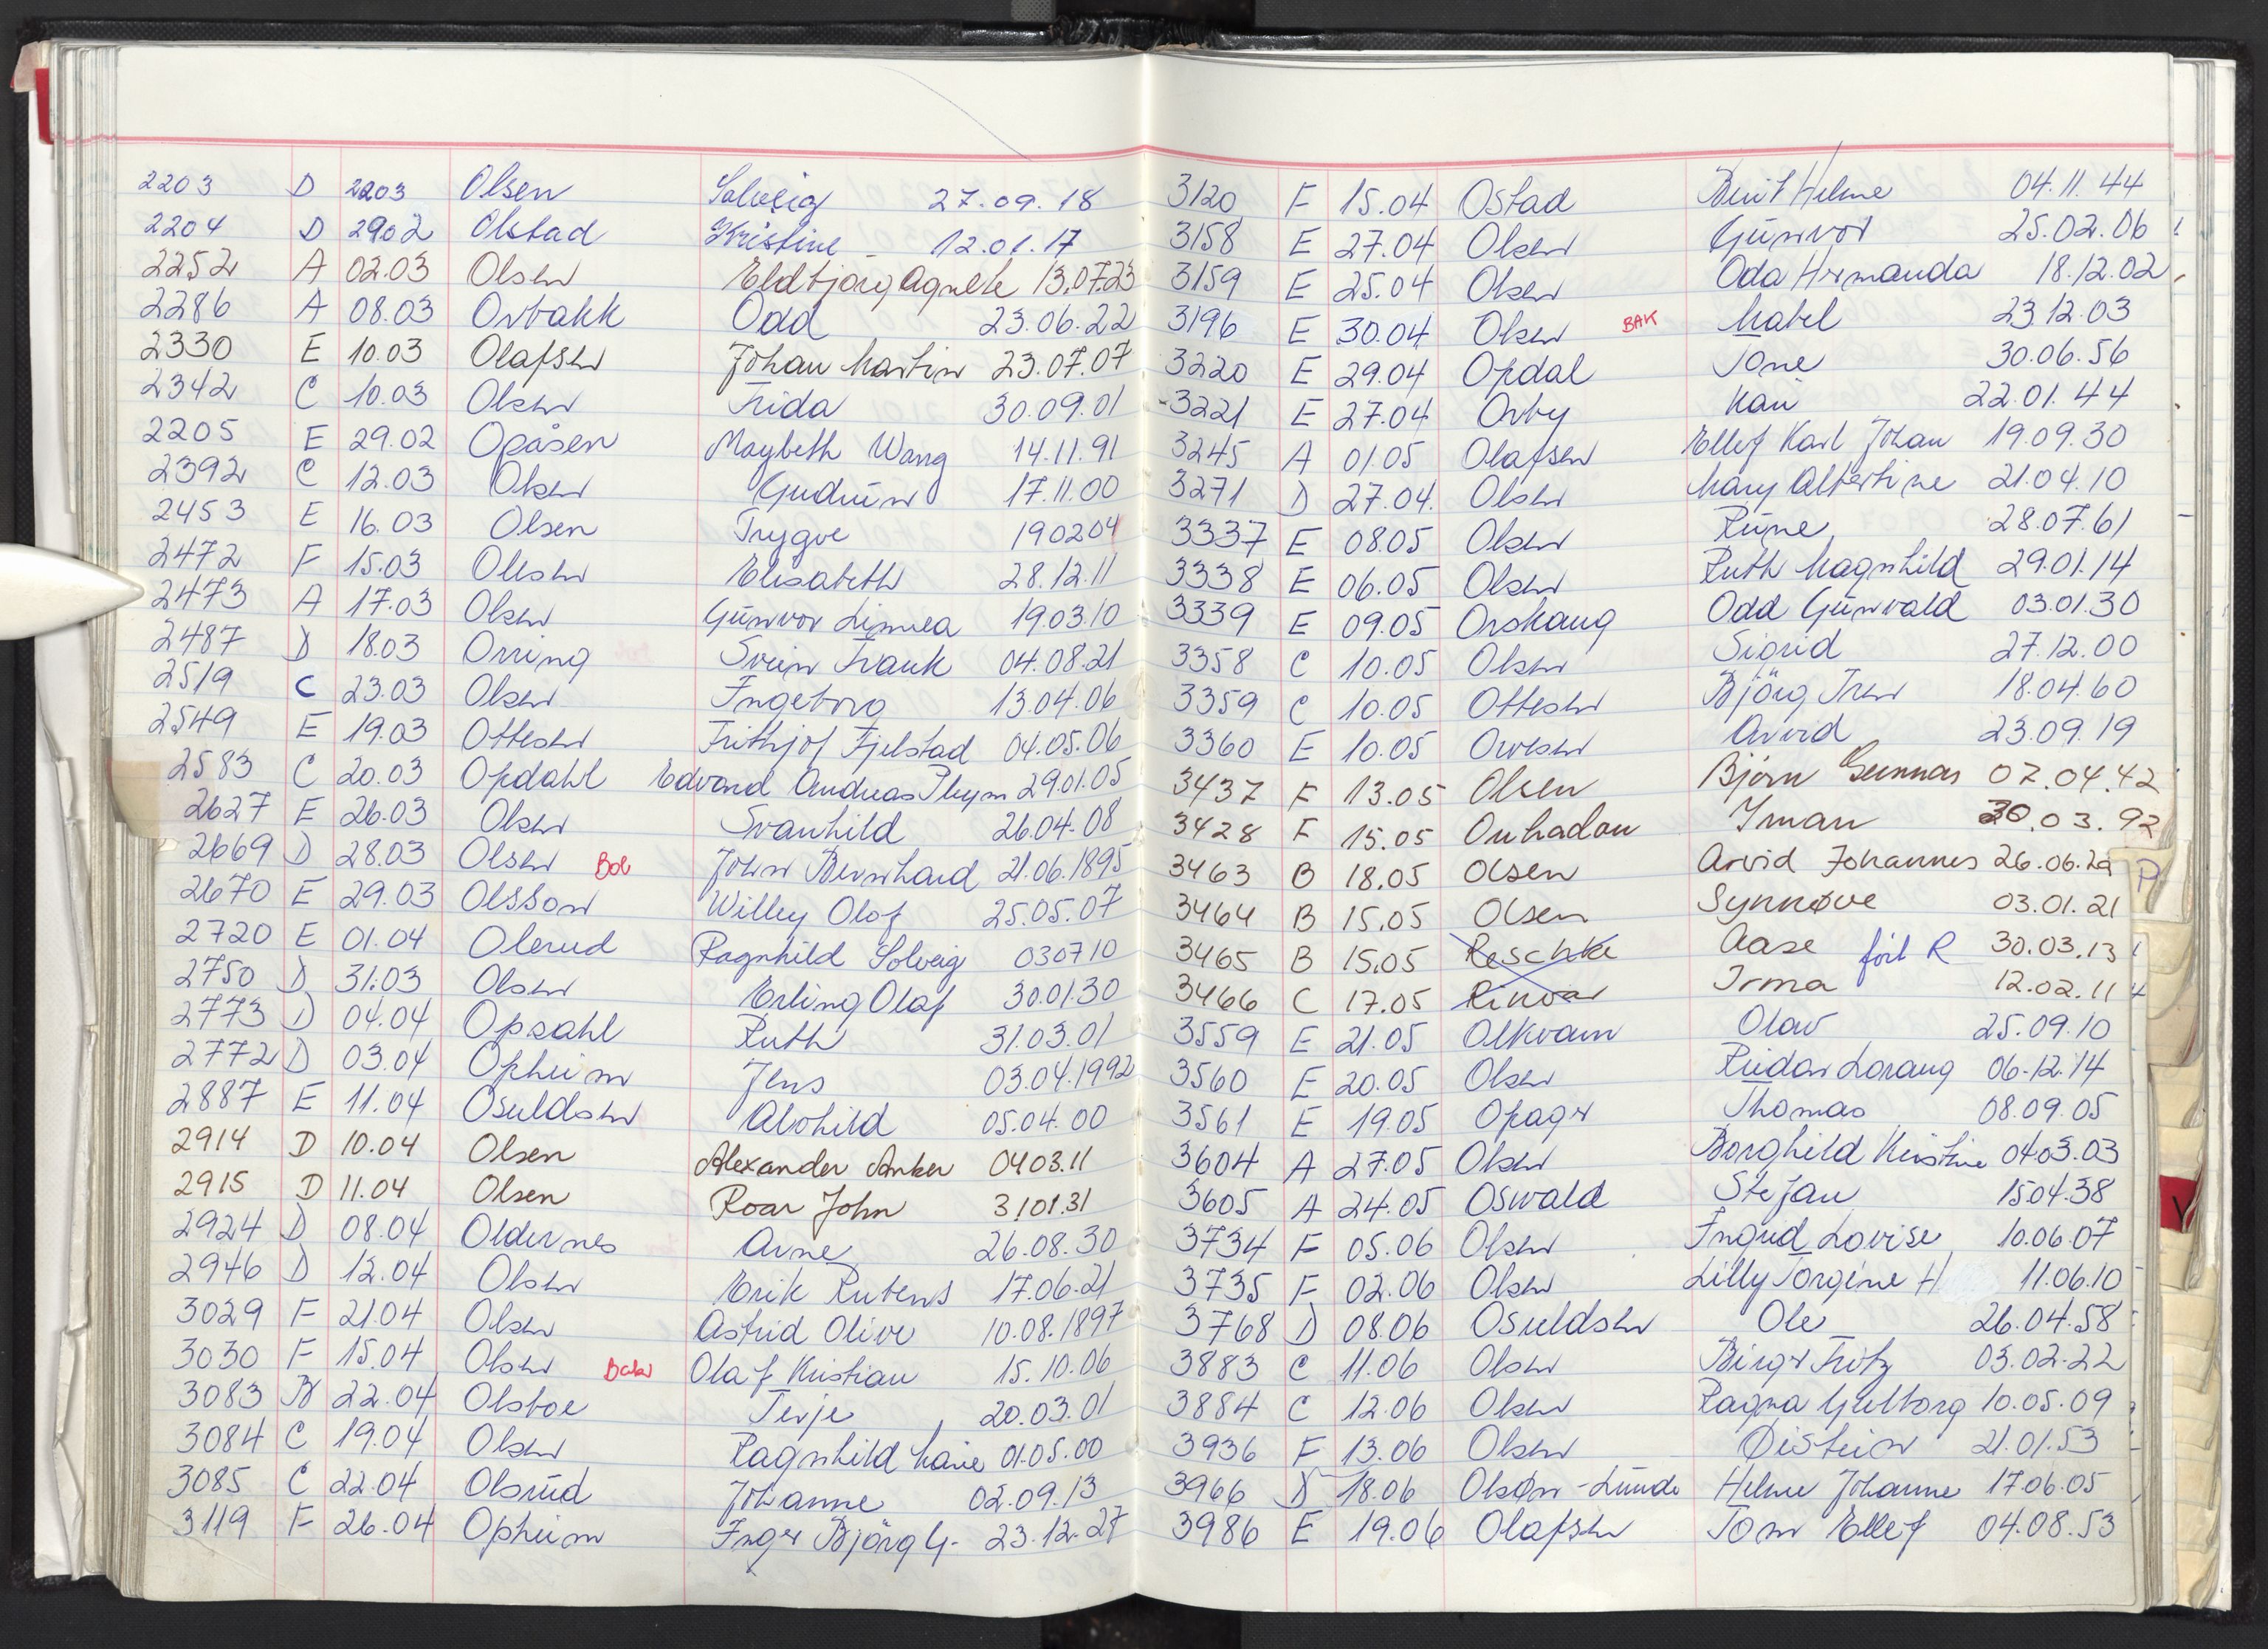 2203 D 2203 Olsen Solveig 27.09.18
2204 D 29.02 Olstad Kristine 12.01.17
2252 A 02.03 Olsen Eldbjörg Agnete 13.07.23
2286 A 08.03 Orbakk Odd 23.06.22
2330 E 10.03 Olafsen Johan Martin 23.07.07
2342 C 10.03 Olsen Frida 30.09.01
2205 E 29.02 Opåsen Maybeth Wang 14.11.91
2392 C 12.03 Olsen Gudrun 17.11.00
2453 E 16.03 Olsen Trygve 190204
2472 F 15.03 Olesen Elisabeth 28.12.11
2473 A 17.03 Olsen Gunvor Linnea 19.03.10
2487 D 18.03 Orring Svein Frank 04.08.21
2519 C 23.03 Olsen Ingeborg 13.04.06
2549 E 19.03 Ottesen Frithjof Fjelstad 04.05.06
2583 C 20.03 Opdahl Edvard Andreas Thym 29.01.05
2627 E 26.03 Olsen Svanhild 26.04.08
2669 D 28.03 Olsen John Bernhard 21.06.1895
2670 E 29.03 Olsson Willey Olof 25.05.07
2720 E 01.04 Olerud Ragnhild Solveig 030710
2750 D 31.03 Olsen Erling Olaf 30.01.30
2773 D 04.04 Opsahl Ruth 31.03.01
2772 D 03.04 Opheim Jens 03.04.1992
2887 E 11.04 Osuldsen Alvhild 05.04.00
2914 D 10.04 Olsen Alexander Anker 0403.11
2915 D 11.04 Olsen Roar John 3101.31
2924 D 08.04 Oldernes Arne 26.08.30
2946 D 12.04 Olsen Erik Rubens 17.06.21
3029 F 21.04 Olsen Astrid Olive 10.08.1897
3030 F 15.04 Olsen Olaf Kristian 15.10.06
3083 B 22.04 Olsboe Terje 20.03.01
3084 C 19.04 Olsen Ragnhild Marie 01.05.00
3085 C 22.04 Olsrud Johanne 02.09.13
3119 F 26.04 Opheim Inger Bjørg G. 23.12.27
3120 F 15.04 Ostad Berit Helene 04.11.44
3158 E 27.04 Olsen Gunvor 25.02.06
3159 E 25.04 Olsen Oda Hermanda 18.12.02
3196 E 30.04 Olsen BAK Mabel 23.12.03
3220 E 29.04 Opdal Tone 30.06.56
3221 E 27.04 Orby Kari 22.01.44
3245 A 01.05 Olafsen Ellef Karl Johan 19.09.30
3271 D 27.04. Olsen Mary Albertine 21.04.10
3337 E 08.05 Olsen Rune 28.07.61
3338 E 06.05 Olsen Ruth Magnhild 29.01.14
3339 E 09.05 Orskaug Odd Gunvald 03.01.30
3358 C 10.05 Olsen Sigrid 27.12.00
3359 C 10.05 Ottesen Björg Iren 18.04.60
3360 E 10.05 Ovesen Arvid 23.09.19
3437 F 13.05 Olsen Bjørn Gunnar 07.04.42
3428 F 15.05 Ouhadou Iman 30.03.92
3463 B 18.05 Olsen Arvid Johannes 26.06.29
3464 B 15.05 Olsen Synnøve 03.01.21
3465 B 15.05 Reschke Aase förl R 30.03.13
3466 C 17.05 Rinvar Irma 12.02.11
3559 E 21.05 Olkvam Olav 25.09.10
3560 E 20.05 Olsen Reidar Lorang 06.12.14
3561 E 19.05 Opager Thomas 08.09.05
3604 A 27.05 Olsen Borghild Kristine 0403.03
3605 A 24.05 Oswald Stefan 1504.38
3734 F 05.06 Olsen Ingrid Lovise 10.06.07
3735 F 02.06 Olsen Lilly Torgine H 11.06.10
3768 D 08.06 Osuldsen Ole 26.04.58
3883 C 11.06 Olsen Birger Fritz 03.02.22
3884 C 12.06 Olsen Ragna Guelborg 10.05.09
3936 F 13.06 Olsen Øistein 21.01.53
3966 D 18.06 Olsøn-Lunde Helene Johanne 17.06.05
3986 E 19.06 Olafsen Tom Ellef 04.08.53